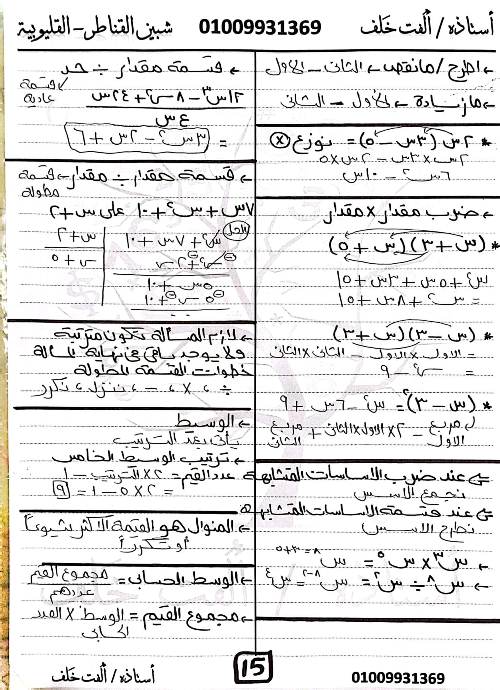 أستاذه / ألفت خلف 01009931369 شبين القناطر - القليوبية
← اطرح / مانقص ← الثانى - الأول
← مازيادة ← الأول - الثانى
* ٢س (٣س - ٥) = نوزع (×)
٢س × ٣س - ٢س × ٥
٦س٢ - ١٠س
← ضرب مقدار × مقدار
* (س + ٣) (س + ٥)
س٢ + ٥س + ٣س + ١٥
= س٢ + ٨س + ١٥
(س - ٣) (س + ٣)
= الأول × الأول - الثانى × الثانى
= س٢ - ٩
* (س - ٣)٢ = س٢ - ٦س + ٩
مربع الأول - ٢ × الأول × الثانى + مربع الثانى
عند ضرب الاساسات المتشابهة
نجمع الأسس
عند قسمة الاساسات المتشابهة
نطرح الأسس
س٣ × س٥ = س٣+٥=٨
س٨ ÷ س٢ = س٨-٢ = س٤
← قسمة مقدار ÷ حد
قسمة عادية
١٢س٣ - ٨س٢ + ٢٤س
٤س
= ٣س٢ - ٢س + ٦
← قسمة مقدار ÷ مقدار ← قسمة مطولة
٧س + س٢ + ١٠ على س + ٢
الحل
س٢ + ٧س + ١٠
س + ٢
س٢ + ٢س
س + ٥
٥س + ١٠
٥س + ١٠
← لازم المسألة تكون مترتبة
ولا يوجد باقى فى نهاية المسألة
خطوات القسمة المطولة
÷ ، × ، - ، ننزل ، نكرر
← الوسيط
يأتى بعد الترتيب
← ترتيب الوسيط الخامس
عدد القيم = ٢ × الترتيب - ١
= ٢ × ٥ - ١ = ٩
← المنوال هو القيمة الأكثر شيوعاً
أو تكرراً
← الوسط الحسابى = مجموع القيم
عددهم
← مجموع القيم = الوسط الحسابى × العدد
أستاذه / ألفت خلف 15 01009931369